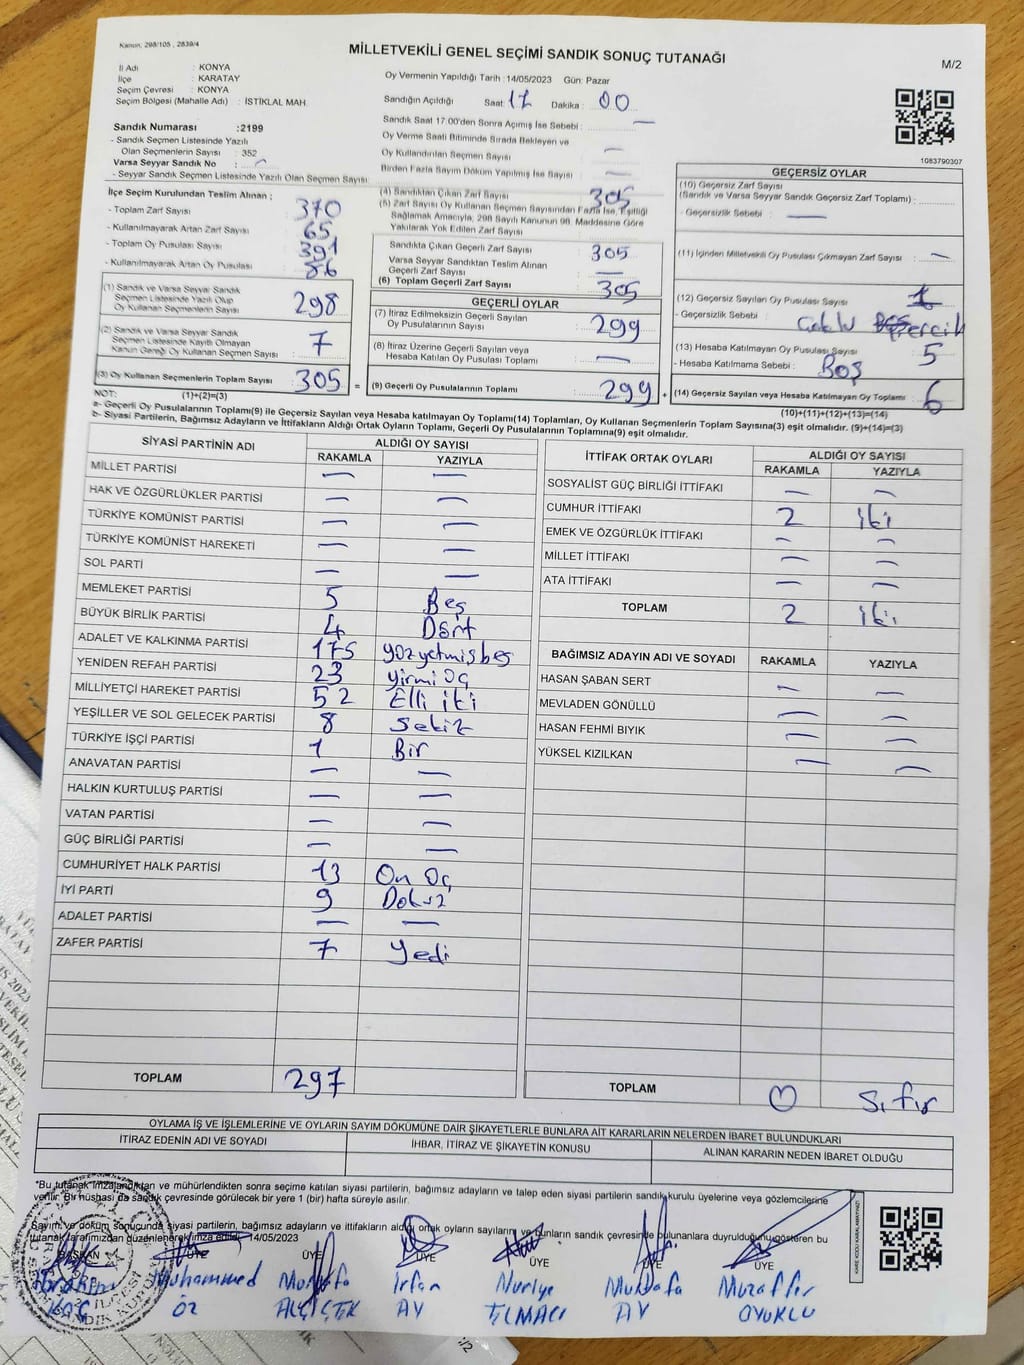 Kanun, 298/105 , 2839/4
MİLLETVEKİLİ GENEL SEÇİMİ SANDIK SONUÇ TUTANAĞI
M/2
İl Adı : KONYA
İlçe : KARATAY
Seçim Çevresi : KONYA
Seçim Bölgesi (Mahalle Adı) : İSTİKLAL MAH.
Oy Vermenin Yapıldığı Tarih :14/05/2023 Gün: Pazar
Sandığın Açıldığı Saat: 17 Dakika : 00
Sandık Saat 17:00'den Sonra Açımış İse Sebebi : —
Oy Verme Saati Bitiminde Sırada Bekleyen ve
Oy Kullandırılan Seçmen Sayısı —
Birden Fazla Sayım Döküm Yapılmış İse Sayısı : —
1083790307
Sandık Numarası :2199
- Sandık Seçmen Listesinde Yazılı
Olan Seçmenlerin Sayısı : 352
Varsa Seyyar Sandık No : –
- Seyyar Sandık Seçmen Listesinde Yazılı Olan Seçmen Sayısı:
İlçe Seçim Kurulundan Teslim Alınan ;
- Toplam Zarf Sayısı : 370
- Kullanılmayarak Artan Zarf Sayısı : 65
- Toplam Oy Pusulası Sayısı : 391
- Kullanılmayarak Artan Oy Pusulası : 86
(1) Sandık ve Varsa Seyyar Sandık
Seçmen Listesinde Yazılı Olup
Oy Kullanan Seçmenlerin Sayısı : 298
(2) Sandık ve Varsa Seyyar Sandık
Seçmen Listesinde Kayıtlı Olmayan
Kanun Gereği Oy Kullanan Seçmen Sayısı : 7
(3) Oy Kullanan Seçmenlerin Toplam Sayısı : 305 =
(4) Sandıktan Çıkan Zarf Sayısı : 305
(5) Zarf Sayısı Oy Kullanan Seçmen Sayısından Fazla İse, Eşitliği
Sağlamak Amacıyla, 298 Sayılı Kanunun 98. Maddesine Göre
Yakılarak Yok Edilen Zarf Sayısı :
Sandıkta Çıkan Geçerli Zarf Sayısı : 305
Varsa Seyyar Sandıktan Teslim Alınan
Geçerli Zarf Sayısı : —
(6) Toplam Geçerli Zarf Sayısı : 305
GEÇERLİ OYLAR
(7) İtiraz Edilmeksizin Geçerli Sayılan
Oy Pusulalarının Sayısı : 299
(8) İtiraz Üzerine Geçerli Sayılan veya
Hesaba Katılan Oy Pusulası Toplamı : —
(9) Geçerli Oy Pusulalarının Toplamı : 299 +
GEÇERSİZ OYLAR
(10) Geçersiz Zarf Sayısı
(Sandık ve Varsa Seyyar Sandık Geçersiz Zarf Toplamı) :
- Geçersizlik Sebebi : —
(11) İçinden Milletvekili Oy Pusulası Çıkmayan Zarf Sayısı : —
(12) Geçersiz Sayılan Oy Pusulası Sayısı : 1
- Geçersizlik Sebebi : Çoklu tercih
(13) Hesaba Katılmayan Oy Pusulası Sayısı : 5
- Hesaba Katılmama Sebebi : Boş
(14) Geçersiz Sayılan veya Hesaba Katılmayan Oy Toplamı : 6
NOT: (1)+(2)=(3)
(10)+(11)+(12)+(13)=(14)
a- Geçerli Oy Pusulalarının Toplamı(9) ile Geçersiz Sayılan veya Hesaba katılmayan Oy Toplamı(14) Toplamları, Oy Kullanan Seçmenlerin Toplam Sayısına(3) eşit olmalıdır. (9)+(14)=(3)
b- Siyasi Partilerin, Bağımsız Adayların ve İttifakların Aldığı Ortak Oyların Toplamı, Geçerli Oy Pusulalarının Toplamına(9) eşit olmalıdır.
SİYASİ PARTİNİN ADI ALDIĞI OY SAYISI
RAKAMLA YAZIYLA
MİLLET PARTİSİ — —
HAK VE ÖZGÜRLÜKLER PARTİSİ — —
TÜRKİYE KOMÜNİST PARTİSİ — —
TÜRKİYE KOMÜNİST HAREKETİ — —
SOL PARTİ — —
MEMLEKET PARTİSİ 5 Beş
BÜYÜK BİRLİK PARTİSİ 4 Dört
ADALET VE KALKINMA PARTİSİ 175 yüzyetmişbeş
YENİDEN REFAH PARTİSİ 23 yirmi üç
MİLLİYETÇİ HAREKET PARTİSİ 52 Elli iki
YEŞİLLER VE SOL GELECEK PARTİSİ 8 Sekiz
TÜRKİYE İŞÇİ PARTİSİ 1 Bir
ANAVATAN PARTİSİ — —
HALKIN KURTULUŞ PARTİSİ — —
VATAN PARTİSİ — —
GÜÇ BİRLİĞİ PARTİSİ — —
CUMHURİYET HALK PARTİSİ 13 On üç
İYİ PARTİ 9 Dokuz
ADALET PARTİSİ — —
ZAFER PARTİSİ 7 Yedi
TOPLAM 297
İTTİFAK ORTAK OYLARI ALDIĞI OY SAYISI
RAKAMLA YAZIYLA
SOSYALİST GÜÇ BİRLİĞİ İTTİFAKI — —
CUMHUR İTTİFAKI 2 iki
EMEK VE ÖZGÜRLÜK İTTİFAKI — —
MİLLET İTTİFAKI — —
ATA İTTİFAKI — —
TOPLAM 2 iki
BAĞIMSIZ ADAYIN ADI VE SOYADI RAKAMLA YAZIYLA
HASAN ŞABAN SERT — —
MEVLADEN GÖNÜLLÜ — —
HASAN FEHMİ BIYIK — —
YÜKSEL KIZILKAN — —
TOPLAM 0 Sıfır
OYLAMA İŞ VE İŞLEMLERİNE VE OYLARIN SAYIM DÖKÜMÜNE DAİR ŞİKAYETLERLE BUNLARA AİT KARARLARIN NELERDEN İBARET BULUNDUKLARI
İTİRAZ EDENİN ADI VE SOYADI İHBAR, İTİRAZ VE ŞİKAYETİN KONUSU ALINAN KARARIN NEDEN İBARET OLDUĞU
"Bu tutanak imzalandıktan ve mühürlendikten sonra seçime katılan siyasi partilerin, bağımsız adayların ve talep eden siyasi partilerin sandık kurulu üyelerine veya gözlemcilerine
verilir. Bir nüshası da sandık çevresinde görülecek bir yere 1 (bir) hafta süreyle asılır.
Sayım ve döküm sonucunda siyasi partilerin, bağımsız adayların ve ittifakların aldığı ortak oyların sayılarını ve bunların sandık çevresinde bulunanlara duyrulduğunu gösteren bu
tutanak tarafımızdan düzenlenerek imza edildi. 14/05/2023
BAŞKAN ÜYE ÜYE ÜYE ÜYE ÜYE
İbrahim Muhammed Mustafa İrfan Nuriye Mustafa Muzaffer
KOÇ ÖZ ALÇİÇEK AY TILMACI AY OYUKLU